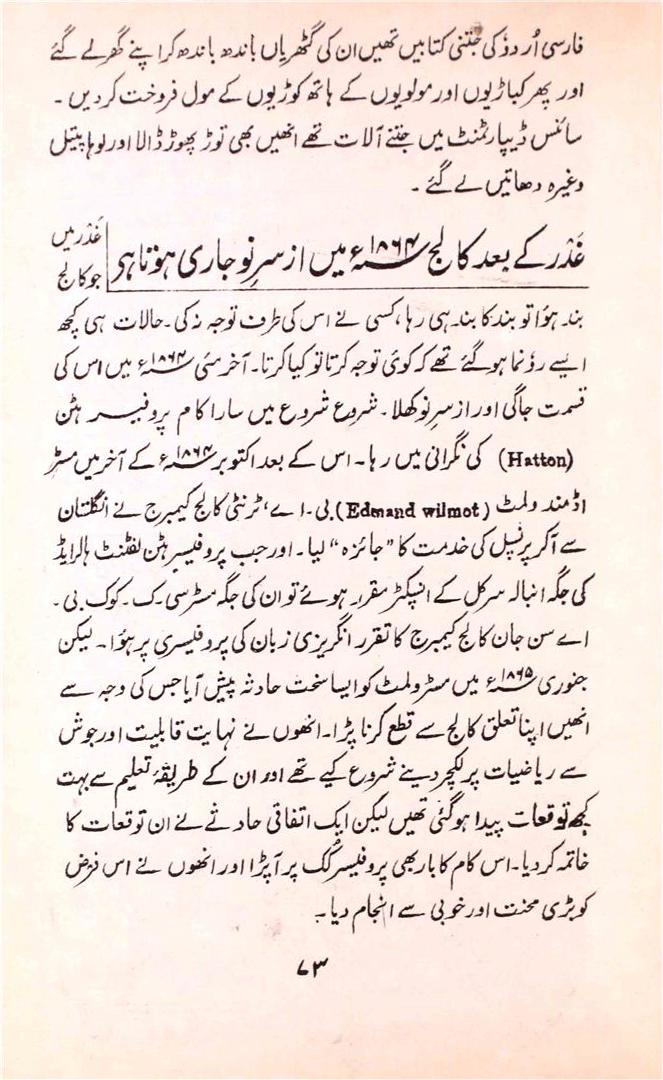 فارسی اُردوٗ کی جتنی کتابیں تھیں ان کی گٹھریاں باندھ باندھ کر اپنے گھر لے گئے
اور پھر کباڑیوں اور مولویوں کے ہاتھ کوڑیوں کے مول فروخت کردیں ۔
سائنس ڈیپارٹمنٹ میں جتنے آلات تھے انھیں بھی توڑ پھوڑ ڈالا اور لوہا پیتل
وغیرہ دھاتیں لے گئے ۔
غَدْر کے بعد کالج ۱۸۶۴ء میں از سرِ نو جاری ہوتا ہر
غَدْر میں
جو کالج
بند ہؤا تو بند کا بند ہی رہا، کسی نے اس کی طرف توجہ نہ کی ۔ حالات ہی کچھ
ایسے روٗنما ہوگئے تھے کہ کوئی توجہ کرتا تو کیا کرتا۔ آخر مئی ۱۸۶۴ء میں اس کی
قسمت جاگی اور از سرِ نو کھلا ۔ شروع شروع میں سارا کام پروفیسر ہٹن
(Hatton) کی نگرانی میں رہا ۔ اس کے بعد اکتوبر ۱۸۶۴ء کے آخر میں مسٹر
اڈمنڈ ولمٹ (Edmand wilmot) بی ۔ اے، ٹرنٹی کالج کیمبرج نے انگلستان
سے آکر پرنسپل کی خدمت کا "جائزہ" لیا ۔ اور جب پروفیسر ہٹن لفٹنٹ ہالرایڈ
کی جگہ انبالہ سرکل کے انسپکٹر مقرر ہوئے تو ان کی جگہ مسٹر سی ۔ ک ۔ کوک بی ۔
اے سن جان کالج کیمبرج کا تقرر انگریزی زبان کی پروفیسری پر ہؤا ۔ لیکن
جنوری ۱۸۶۵ء میں مسٹر ولمٹ کو ایسا سخت حادثہ پیش آیا جس کی وجہ سے
انھیں اپنا تعلق کالج سے قطع کرنا پڑا۔ انھوں نے نہایت قابلیت اور جوش
سے ریاضیات پر لکچر دینے شروع کیے تھے اور ان کے طریقۂ تعلیم سے بہت
کچھ توقعات پیدا ہوگئی تھیں لیکن ایک اتفاقی حادثے نے ان توقعات کا
خاتمہ کر دیا ۔ اس کام کا بار بھی پروفیسر کُک پر آپڑا اور انھوں نے اس فرض
کو بڑی محنت اور خوبی سے انجام دیا ۔
۷۳